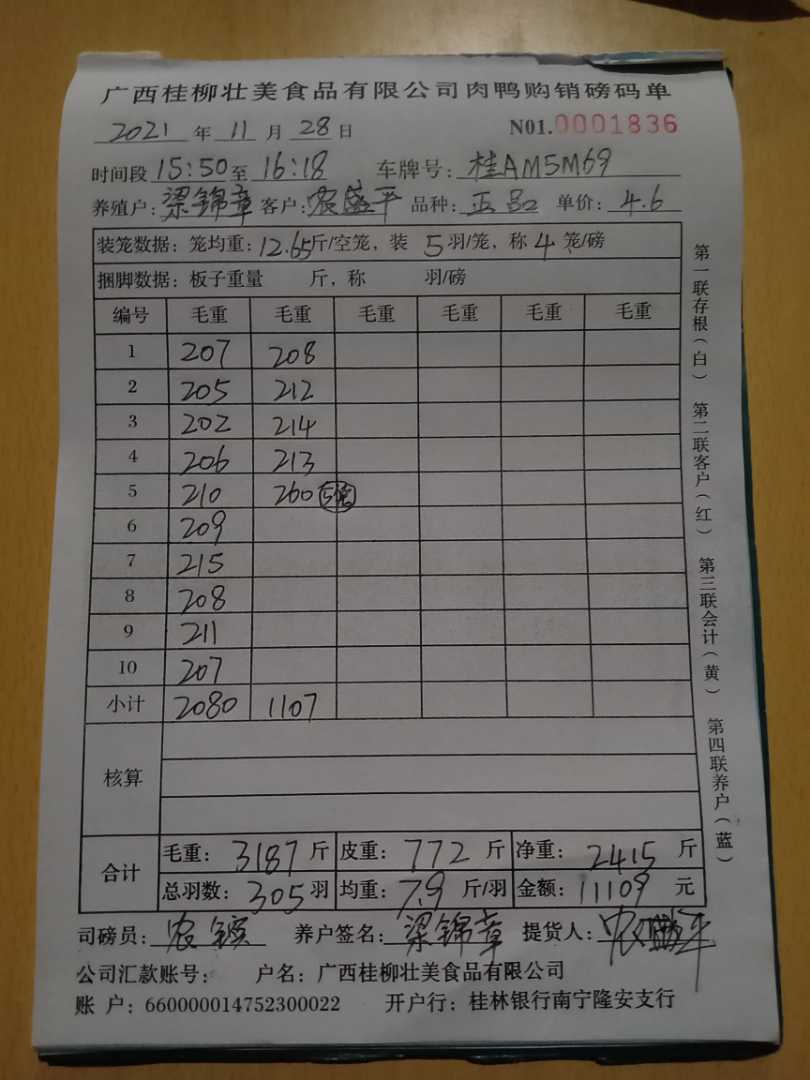 广西桂柳壮美食品有限公司肉鸭购销磅码单
2021 年 11 月 28 日 N01.0001836
时间段 15:50 至 16:18 车牌号: 桂AM5M69
养殖户: 梁锦章 客户: 农盛平 品种: 正品 单价: 4.6
装笼数据: 笼均重: 12.65 斤/空笼, 装 5 羽/笼, 称 4 笼/磅
捆脚数据: 板子重量 斤, 称 羽/磅
编号 毛重 毛重 毛重 毛重 毛重 毛重
1 207 208
2 205 212
3 202 214
4 206 213
5 210 260 5笼
6 209
7 215
8 208
9 211
10 207
小计 2080 1107
核算
合计 毛重: 3187 斤 皮重: 772 斤 净重: 2415 斤
总羽数: 305 羽 均重: 7.9 斤/羽 金额: 11109 元
司磅员: 农 养户签名: 梁锦章 提货人: 农盛平
公司汇款账号: 户名: 广西桂柳壮美食品有限公司
账 户: 660000014752300022 开户行: 桂林银行南宁隆安支行
第一联存根(白) 第二联客户(红) 第三联会计(黄) 第四联养户(蓝)